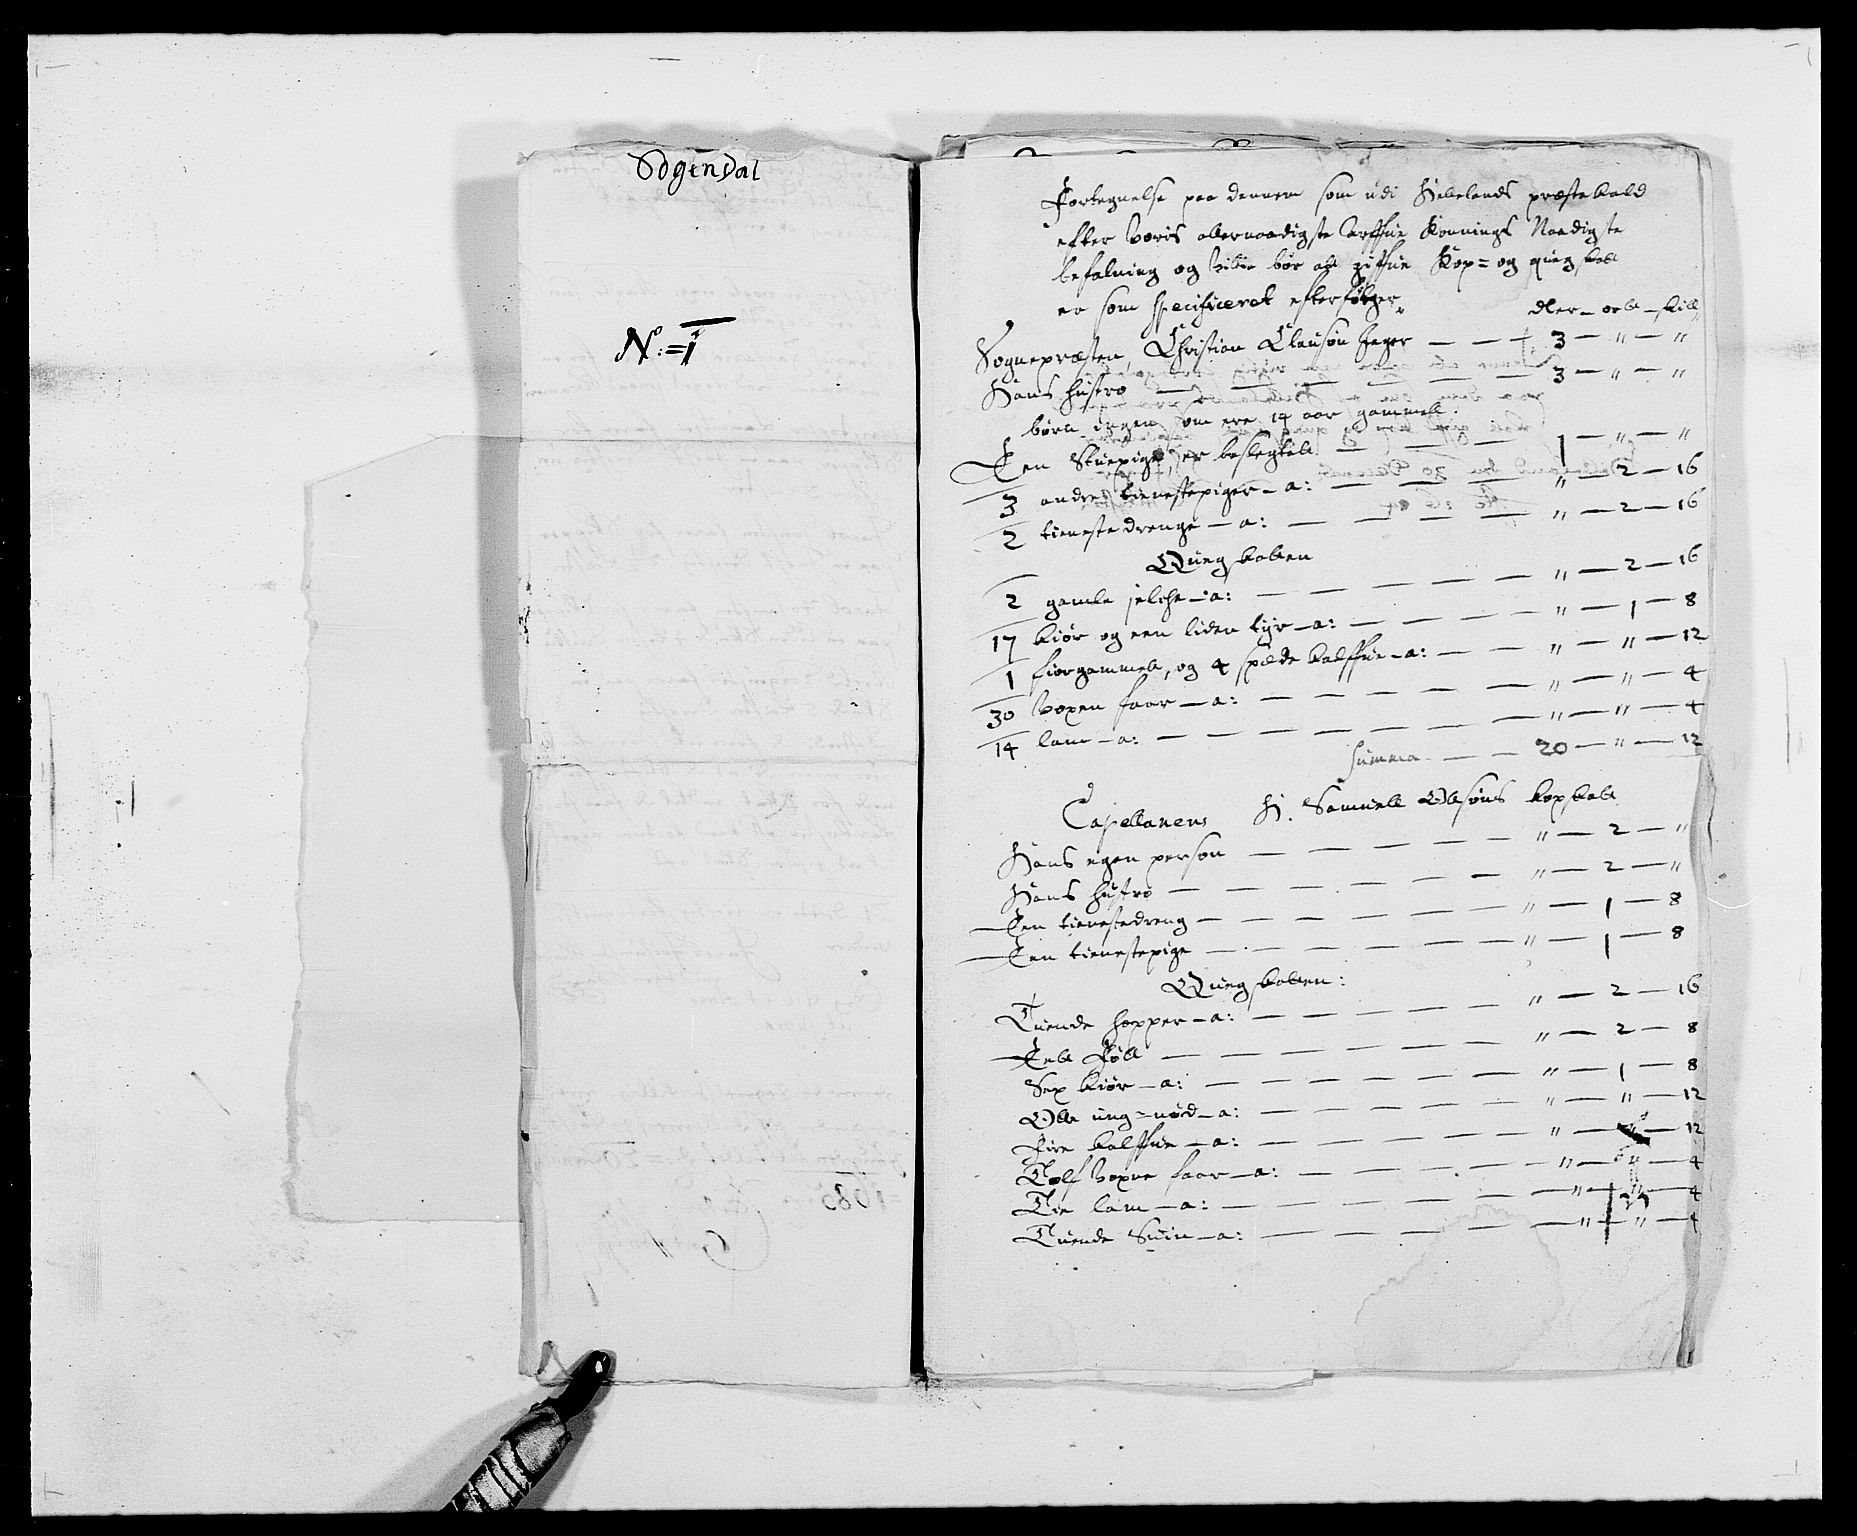 Sogendal
N:o =1
Fortegnelse paa dennem som udi Hellelands præstekald
efter Voris allernaadigste Arffue Konnings Naadigste
befalning og Villie bør att giffue Kop= og quegskatt
er som specificeret efterfølger
dler — ort — skill
Sognepræsten, Christian Clausøn Jeger — — — 3 — " — "
Hans hustro — — — — — 3 — " — "
børn ingen som ere 14 aar gammell.
Een Stuepige, er beslegtett — — — 1 — " — "
3 andre tienestepiger — a: — — — " — 2 — 16
2 tienestedrenge — a: — — — — " — 2 — 16
Quegskatten
2 gamle jelche — a: — — — — " — 2 — 16
17 kiør og een liden tyr — a: — — — " — 1 — 8
1 fiorgammell, og 4 spæde kalffue — a: — — " — " — 12
30 Voxen faar — a: — — — — " — " — 4
14 lam — a: — — — — " — " — 4
Summa — — 20 — " — 12
Capellanens H. Samuell Olsøns kopskatt
Hans egen person — — — — " — 2 — "
Hans hustro — — — — " — 2 — "
Een tienestedreng — — — — " — 1 — 8
Een tienestepige — — — — " — 1 — 8
Quegskatten:
Tuende hopper — a: — — — — " — 2 — 16
Ett Føll — — — — " — 2 — 8
Sex kiør — a: — — — — " — 1 — 8
Otte ung=nød — a: — — — — " — " — 12
Fire kalffue — a: — — — — " — " — 12
Tolf Voxne faar — a: — — — — " — " — 4
Tie lam — a: — — — — " — " — 4
Tuende Suin — a: — — — — " — " — 4